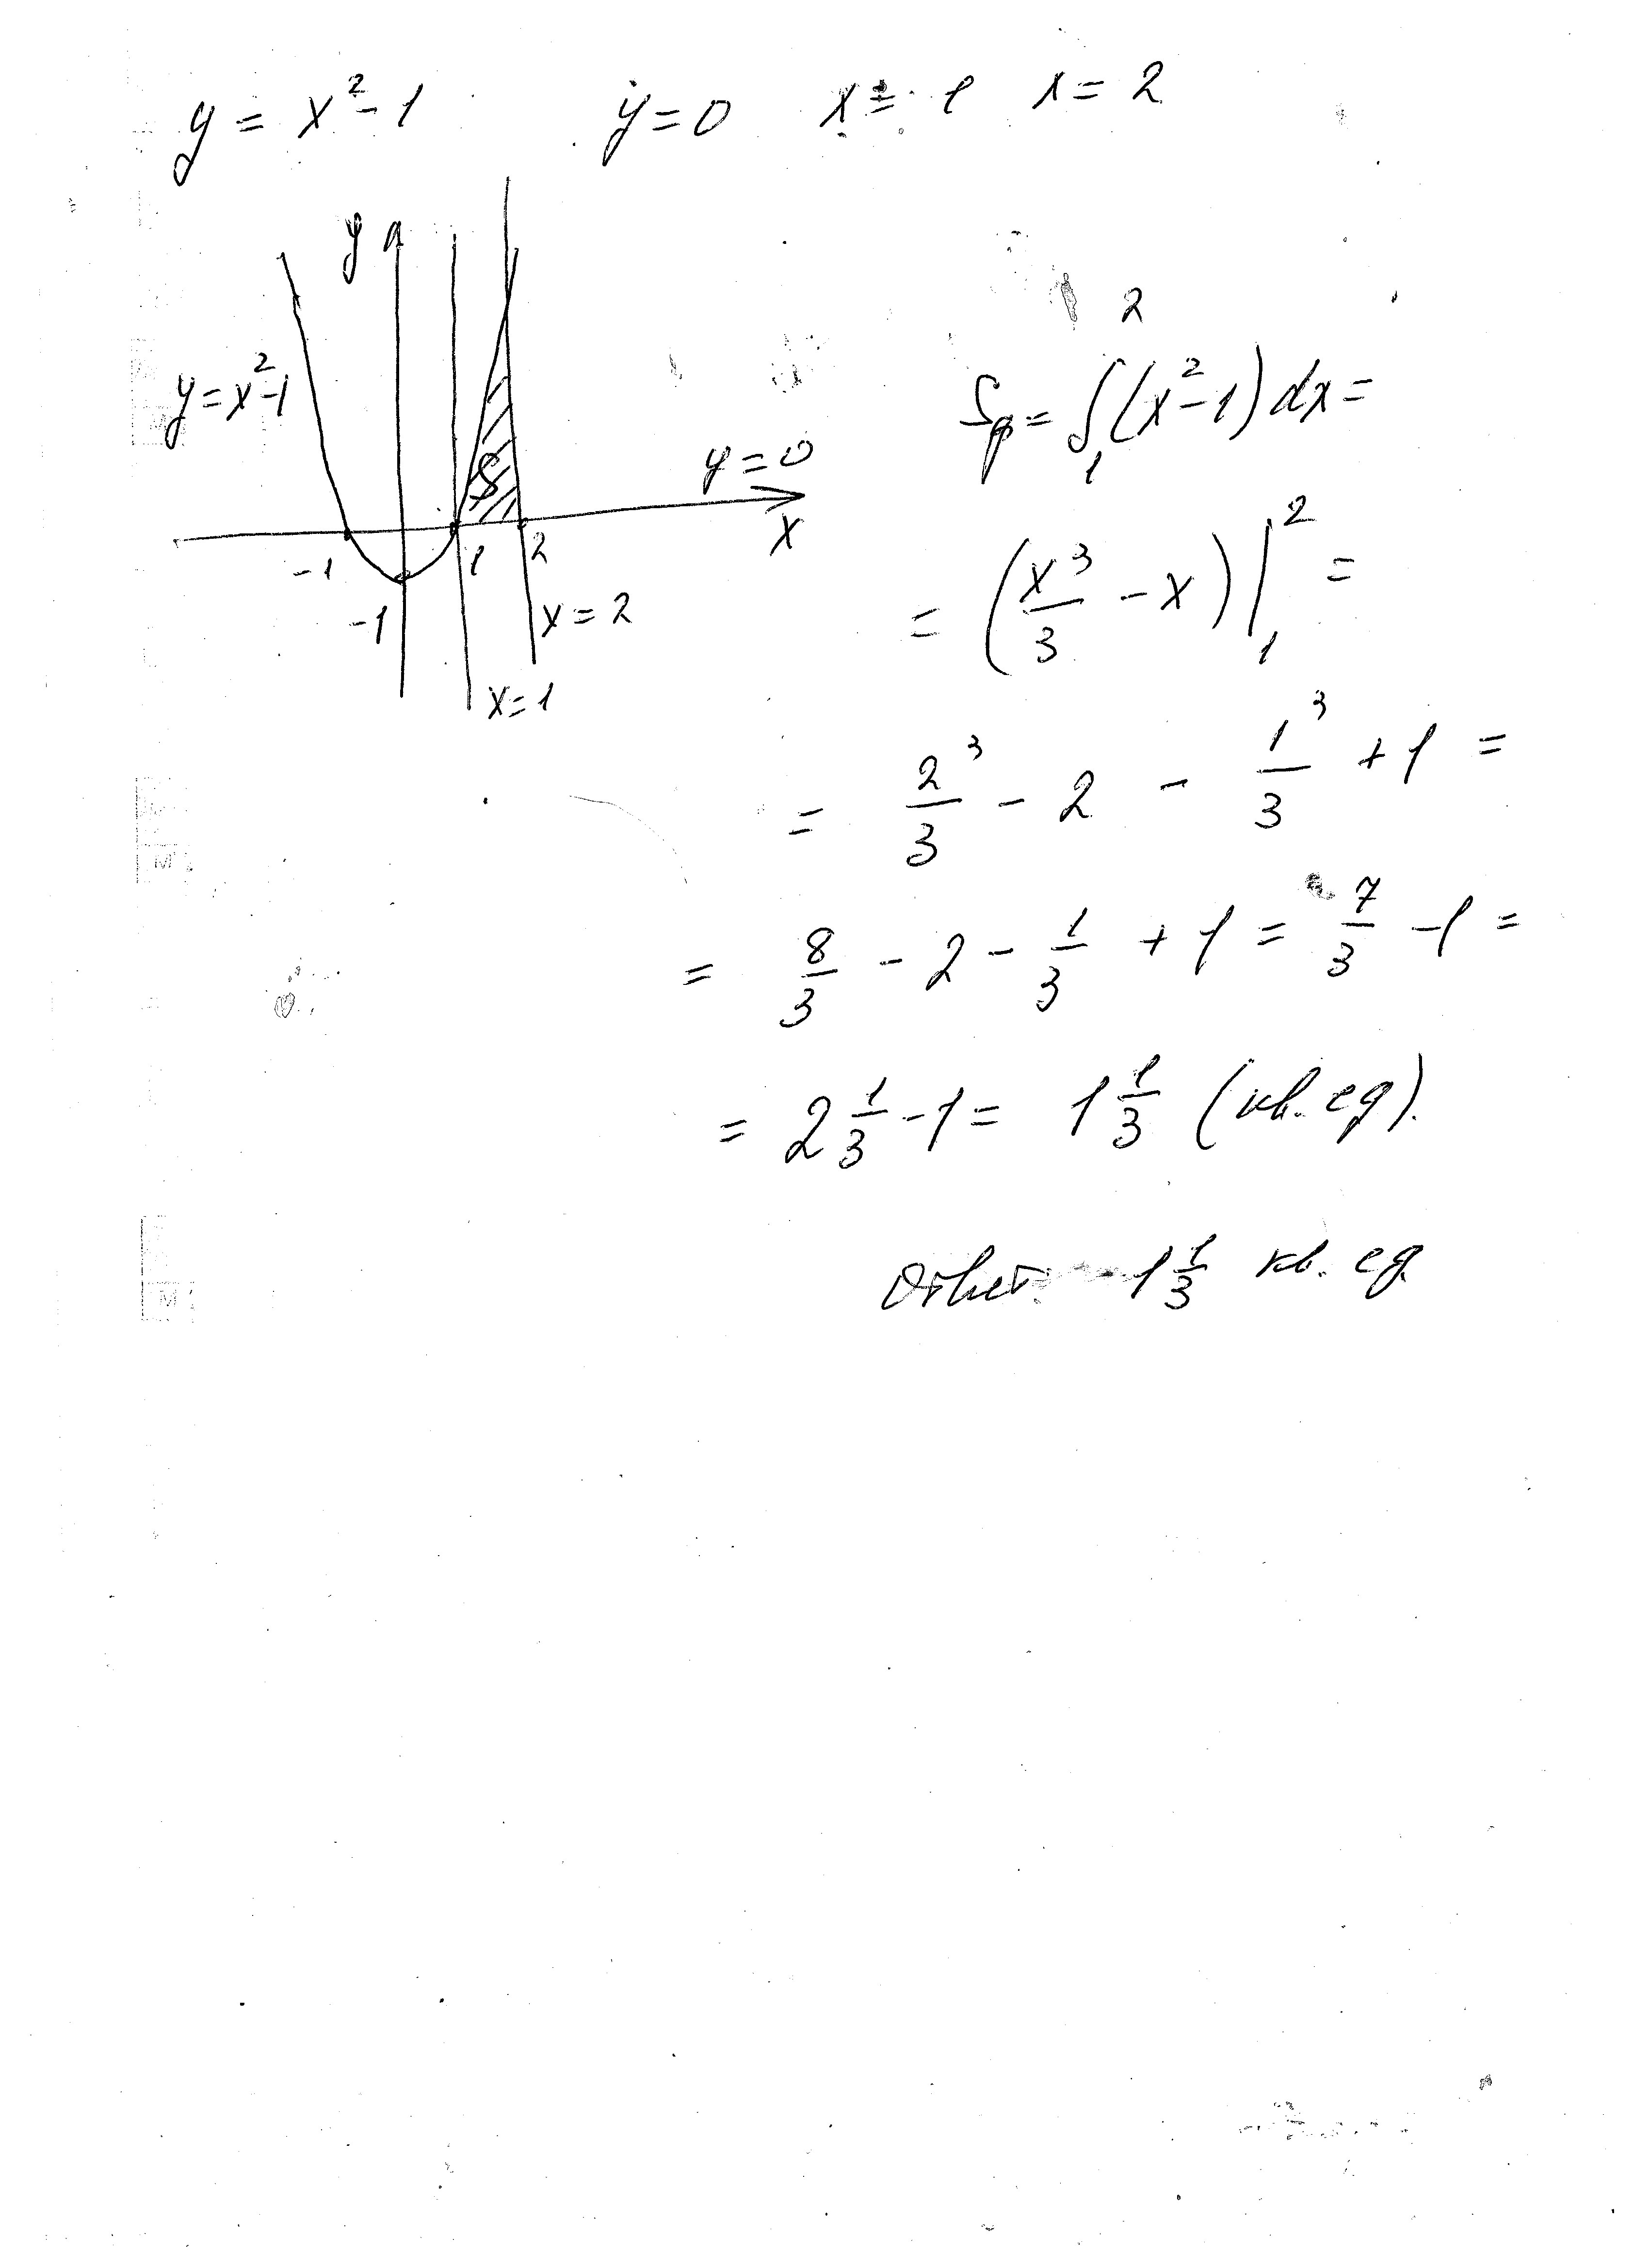 y = x² - 1 y = 0 x = 1 x = 2
y
y = x² - 1
y = 0
x
S
-1 1 2
-1
x = 2
x = 1
Sф = ∫₁² (x² - 1) dx =
= (x³/3 - x) |₁² =
= 2³/3 - 2 - 1³/3 + 1 =
= 8/3 - 2 - 1/3 + 1 = 7/3 - 1 =
= 2 1/3 - 1 = 1 1/3 (кв. ед).
Ответ - 1 1/3 кв. ед.